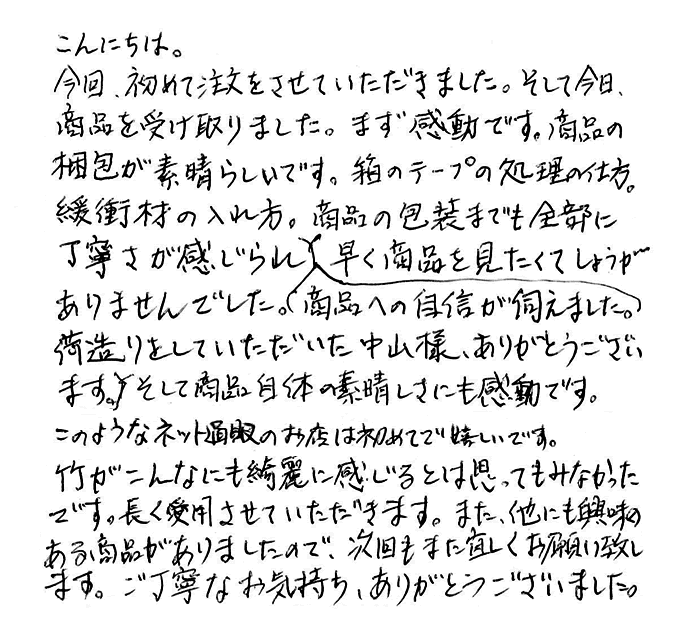 こんにちは。
今回、初めて注文をさせていただきました。そして今日、
商品を受け取りました。まず感動です。商品の
梱包が素晴らしいです。箱のテープの処理の仕方。
緩衝材の入れ方。商品の包装までも全部に
丁寧さが感じられ、早く商品を見たくてしょうが
ありませんでした。(商品への自信が伺えました。)
荷造りをしていただいた中山様、ありがとうござい
ます。そして商品自体の素晴しさにも感動です。
このようなネット通販のお店は初めてで嬉しいです。
竹がこんなにも綺麗に感じるとは思ってもみなかった
です。長く愛用させていただきます。また、他にも興味の
ある商品がありましたので、次回もまた宜しくお願い致し
ます。ご丁寧なお気持ち、ありがとうございました。